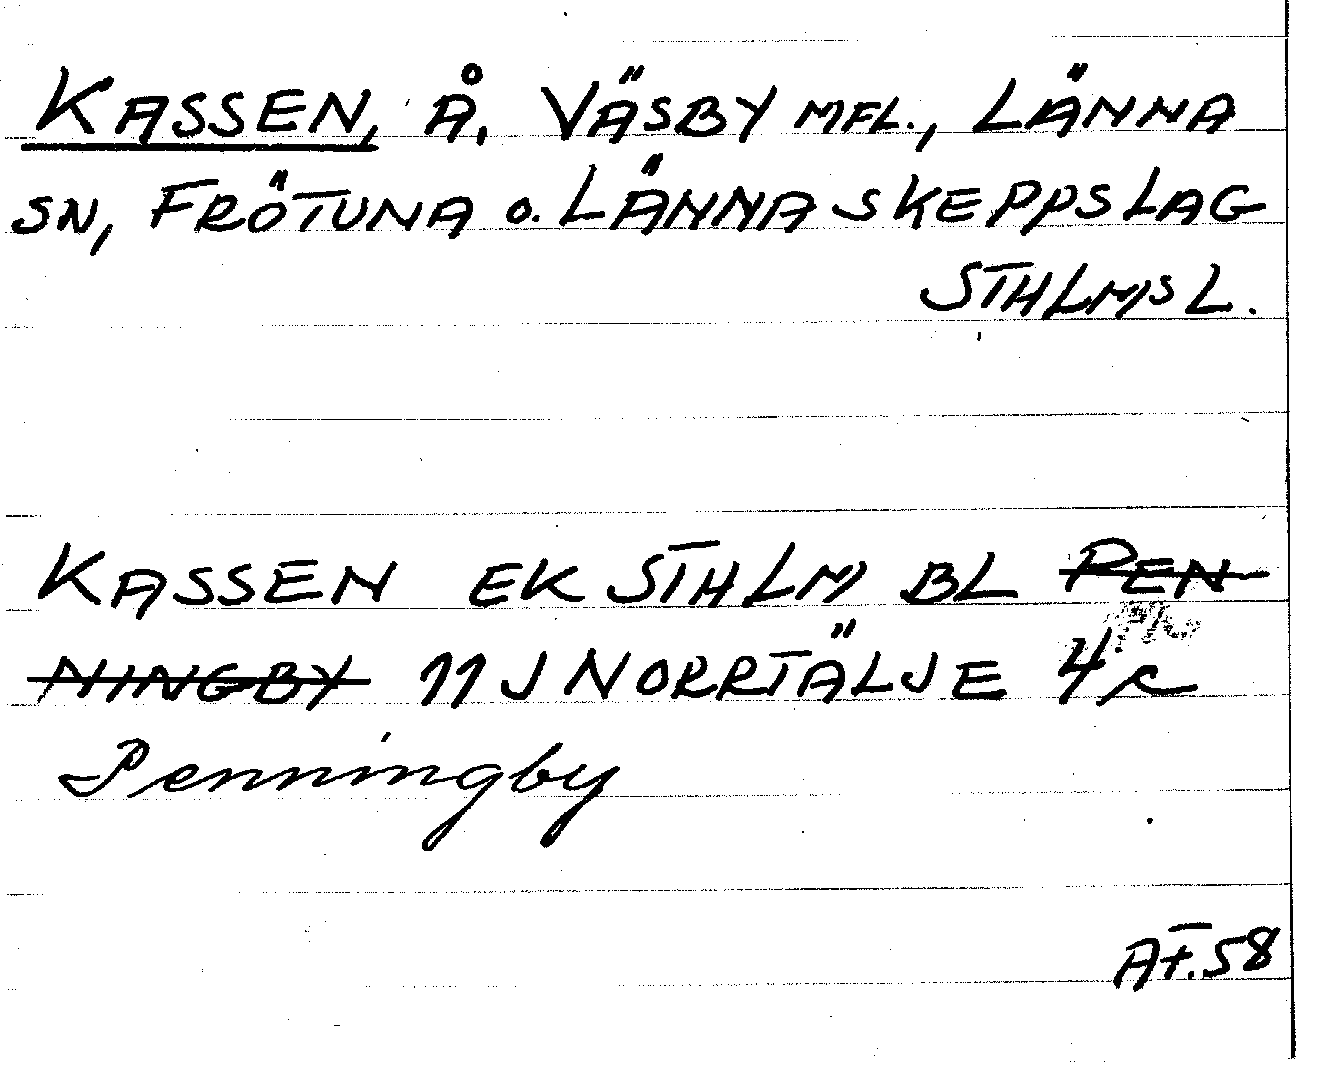 KASSEN, Å, VÄSBY MFL., LÄNNA
SN, FRÖTUNA O. LÄNNA SKEPPSLAG
STHLMS L.
KASSEN EK STHLM BL PEN
NINGBY 11J NORRTÄLJE 4c
Penningby
AF.58